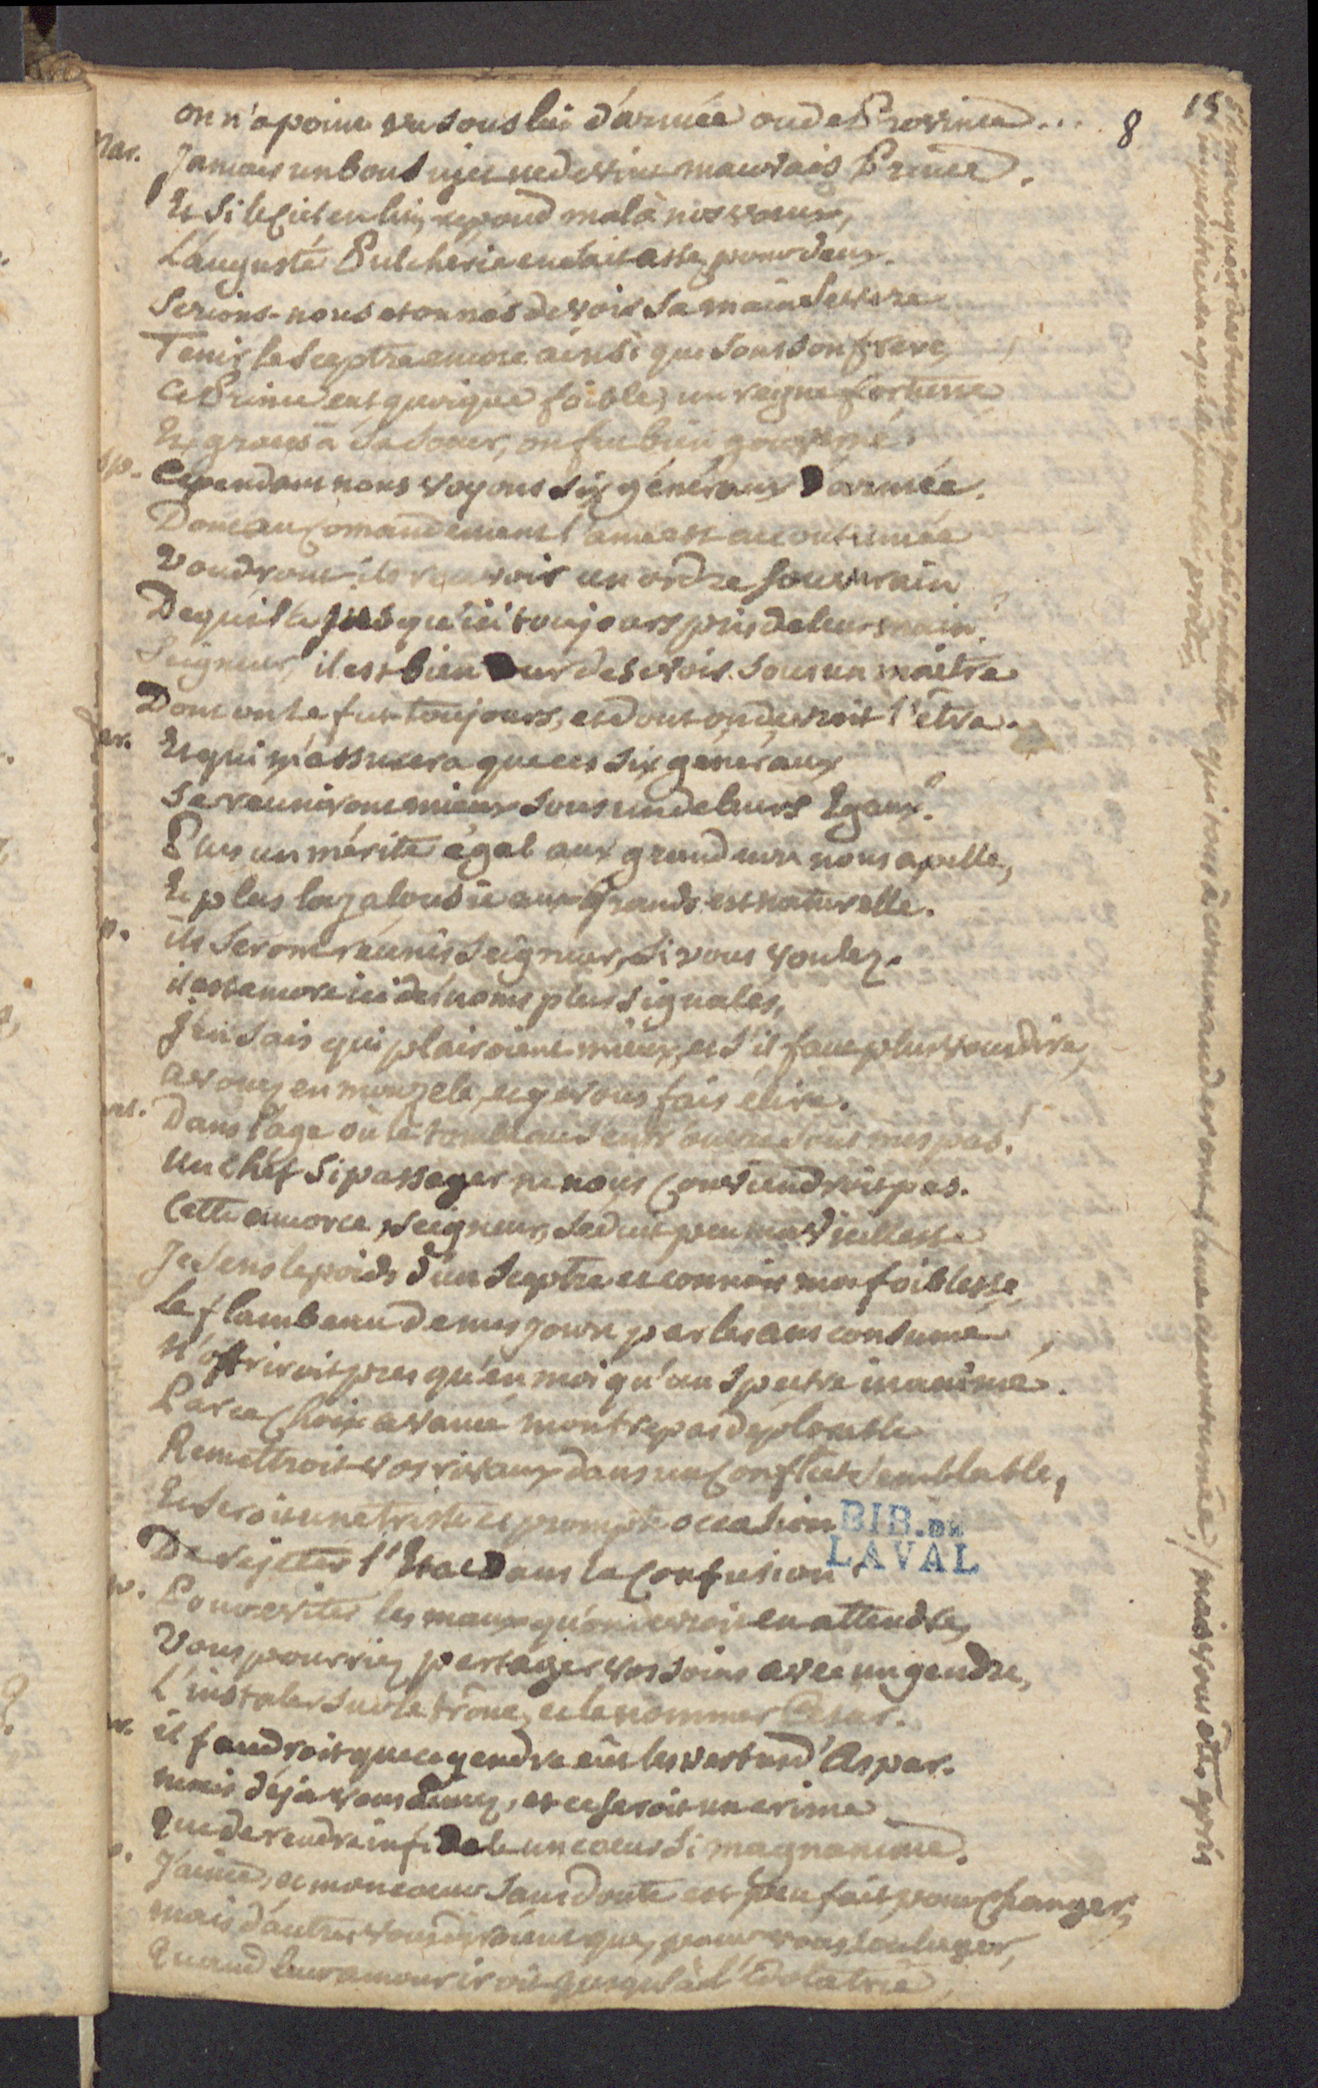 8
on n'a point vu sous lui d'armée ou de Province...
Mar. Jamais un bon sujet ne devint mauvais Prince.
Et si le Ciel en lui, repond mal à nos vœux,
L'auguste Pulcherie en fait assez pour deux.
Serions-nous etonnés de voir sa main severe
Tenir le sceptre encore ainsi que sous son frere,
Ce Prince eut quoique foible, un regne fortuné
Et grace à sa sœur, on fut bien gouverné
sp. Cependant nous voyons six généraux d'armée.
Dont au Comandement l'ame est accoutumée
Voudront-ils recevoir un ordre souverain
De qui l'a jusqu'ici toujours pris de leur main?
Seigneur, il est bien dur de se voir sous un maitre
Dont on le fut toujours, et dont on devroit l'être.
ar. Et qui m'assurera que ces six generaux
Se reuniront mieux sous un de leurs Egaux?
Plus un mérite égal aux grandeurs nous apelle,
Et plus la jalousie aux grands est naturelle.
p. ils seront réunis Seigneur, si vous voulez.
il est encore ici des noms plus signales,
J'en sais qui plairoient mieux, et s'il faut plus vous dire,
avouez en mon zele, et je vous fais élire.
ar. Dans l'age où le tombeau s'entr'ouvre sous mes pas!
Un chef si passager ne nous Conviendroit pas.
Cette amorce, Seigneur, seduit peu ma vieillesse
Je sens le poids d'un sceptre et connois ma foiblesse
Le flambeau de mes jours par les ans consumé,
N'offriroit presqu'en moi qu'un spectre inanimé.
Par ce Choix avancé mon trepas déplorable
Remettroit vos rivaux dans un Conflict semblable,
Et seroit une triste et prompte occasion
De rejetter l'Etat dans la Confusion
p. Pour eviter les maux qu'on devroit en attendre,
Vous pourriez partager vos soins avec un gendre,
L'instaler sur le trône, et le nommer Cesar.
ar. il faudroit que ce gendre eût les vertus d'Aspar.
mais déja vous aimez, et ce seroit un crime
Que de rendre infidele un cœur si magnanime.
p. J'aime, et mon cœur sans doute est peu fait pour Changer,
mais d'autres voudroient que, pour vous soulager,
Quand leur amour iroit jusqu'à l'idolatrie,
BIB. DE
LAVAL
15
qui tous à commander ont l'ame accoutumée, / mais vous êtes epris